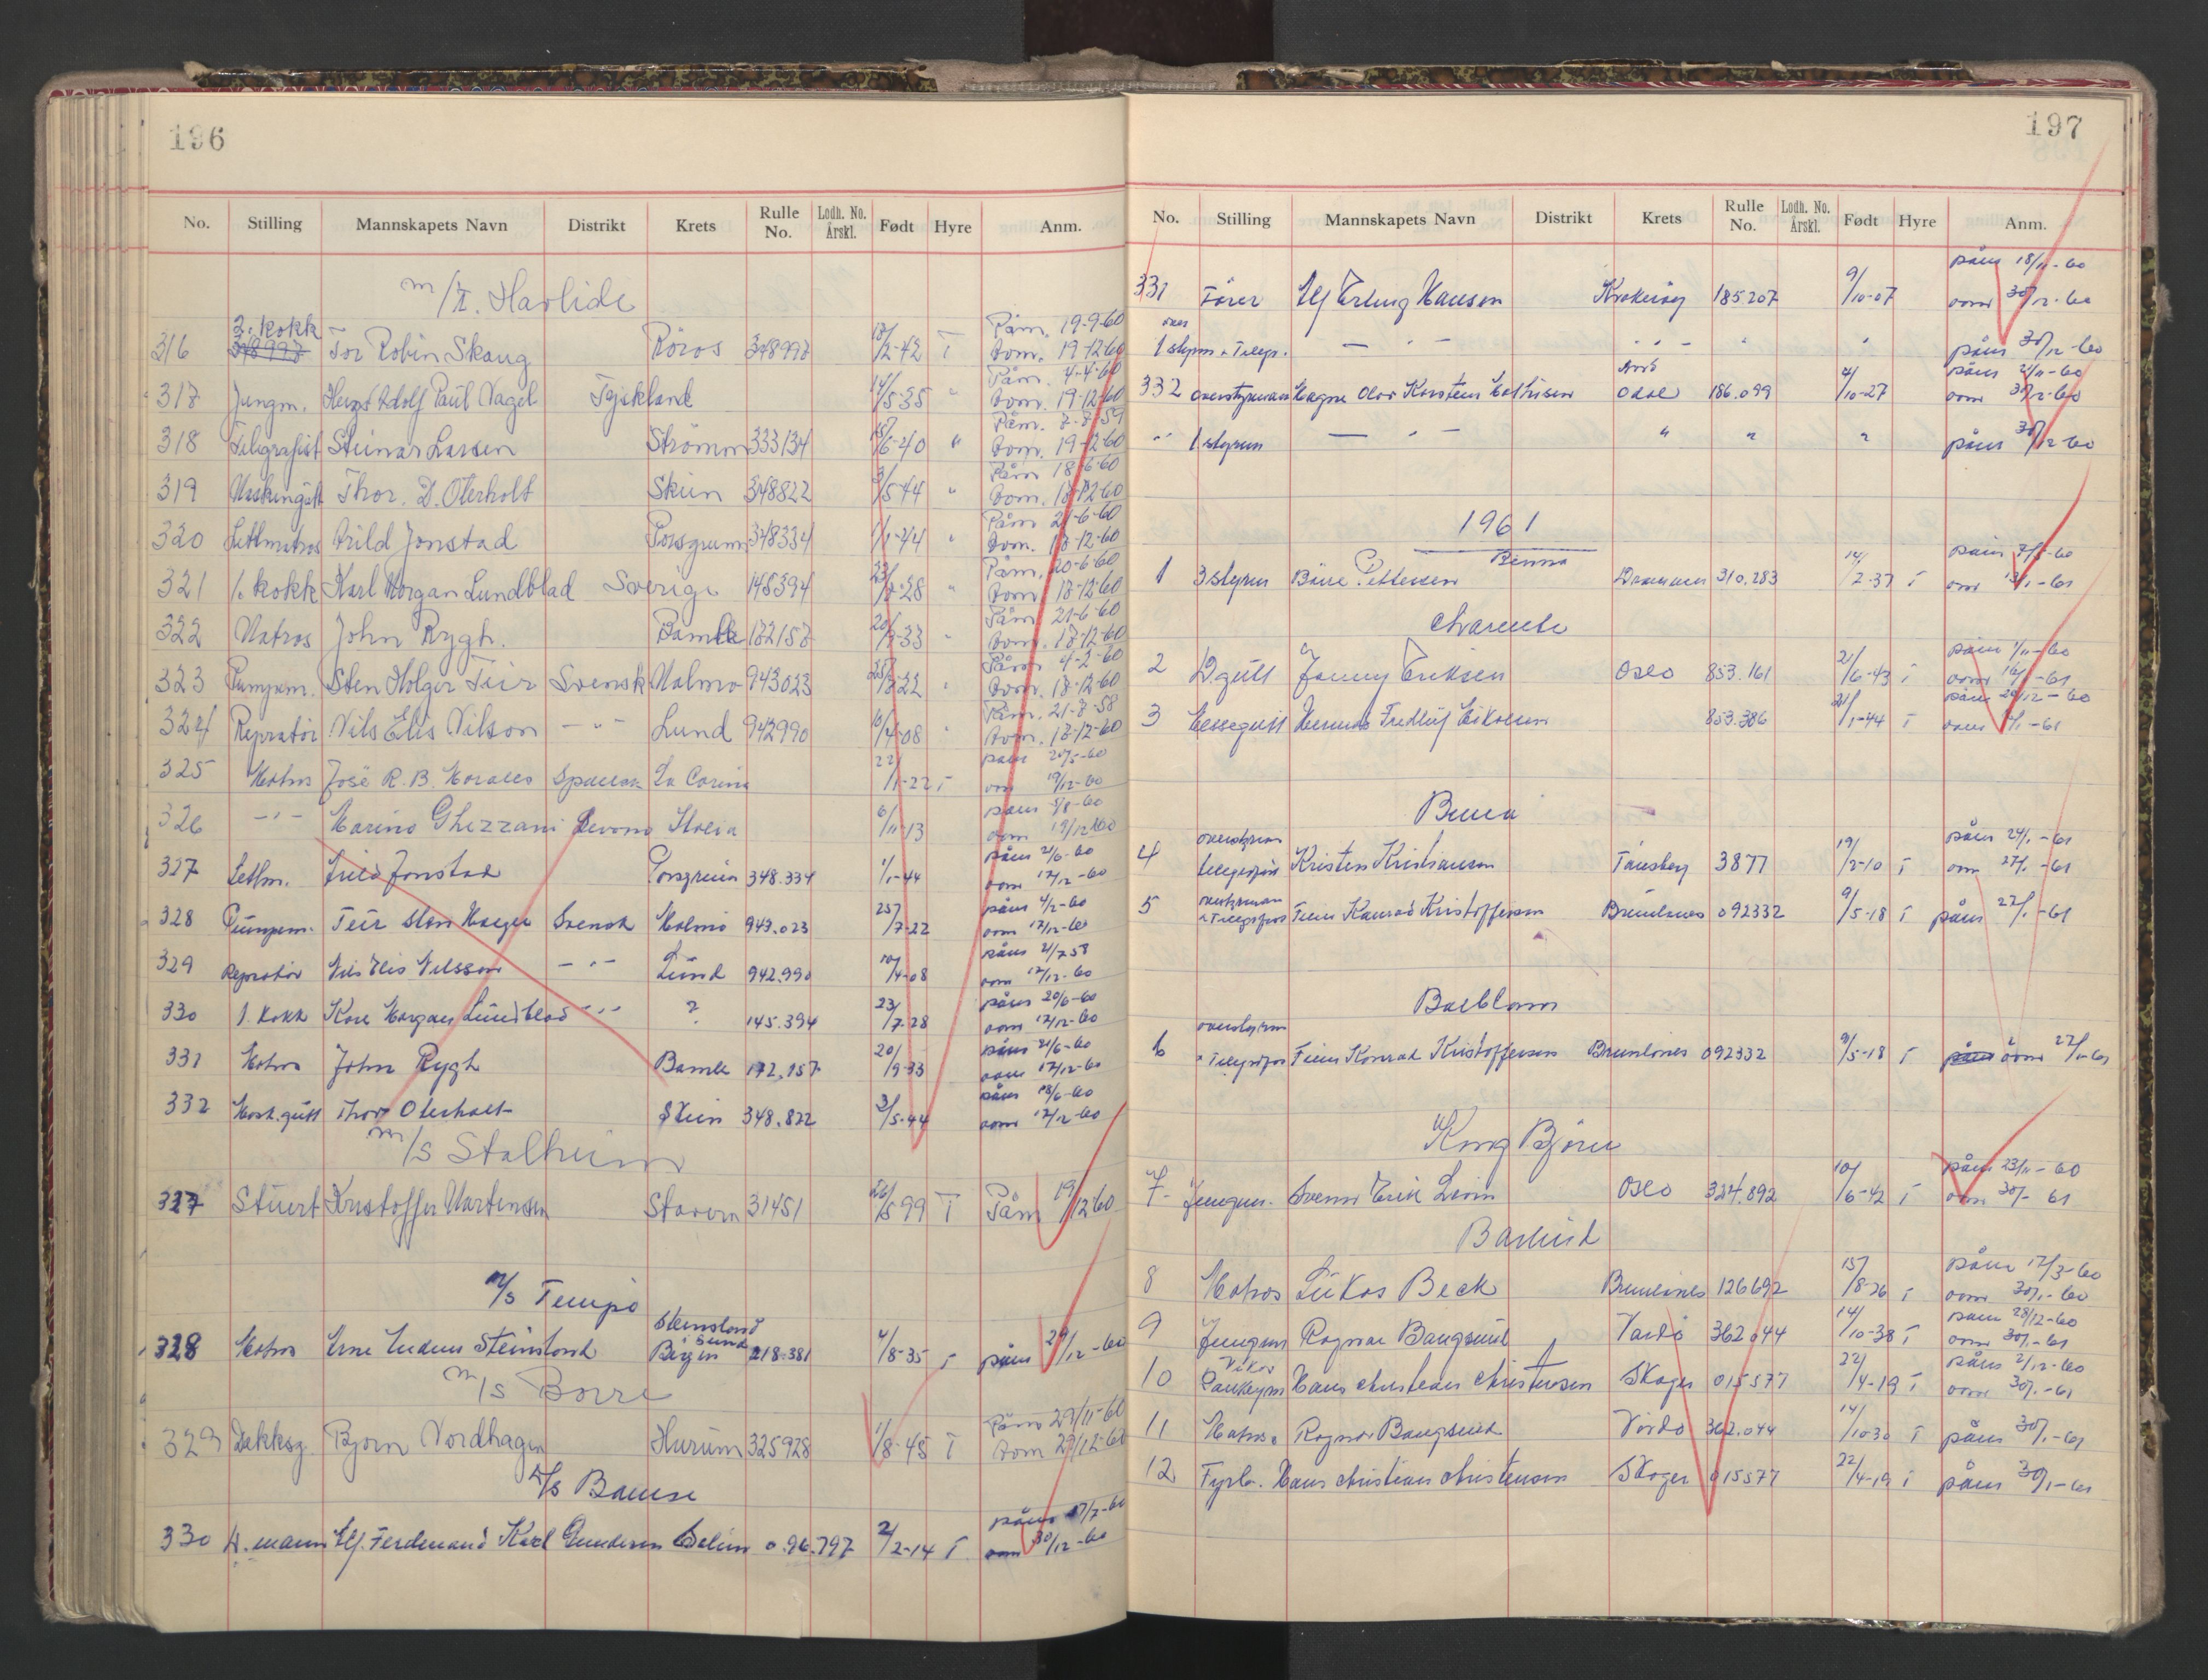 196
No. Stilling Mannskapets Navn Distrikt Krets Rulle No. Lodh. No. Årskl. Født Hyre Anm.
m/T. Havlide
316 2. kokk 348997 Tor Robin Skaug Röros 348997 18/2-42 T Påm. 19-9-60
Avm. 19-12-60
317 Jungm. Adolf Paul Nagel Tyskland 14/5-35 " Påm. 4-4-60
Avm. 19-12-60
318 Telegrafist Steinar Larsen Strömm 333134 18/6-40 " Påm. 7-7-59
Avm. 19-12-60
319 Thor. D. Oterholt Skien 348822 3/5-44 " Påm 18-6-60
Avm. 18-12-60
320 Lettmatros Arild Jonstad Porsgrunn 348334 1/1-44 " Påm 21-6-60
Avm. 18-12-60
321 1. kokk Karl Morgan Lundblad Sverige 145394 23/7-28 " Påm. 20-6-60
Avm. 18-12-60
322 Matros John Rygh. Bamble 172157 20/9-33 " Påm 21-6-60
Avm. 18-12-60
323 Pumpem. Sten Holger Teir Svensk Malmø 943023 25/7-22 " Påm 4-2-60
Avm. 18-12-60
324 Reparatör Nils Elis Nilson - " - Lund 942990 10/4-08 " Påm. 21-7-58
Avm. 18-12-60
325 Matros José R. B. Morales Spansk La Corina 22/1-22 T påm 20/5-60
avm 19/12-60
326 - " - Marino Ghezzani Italia 6/11-13 påm 5/8-60
avm 19/12-60
327 Lettm. Arild Jonstad Porsgrunn 348.334 1/1-44 påm 21/6-60
avm 17/12-60
328 Pumpem. Teir Sten Holger Svensk Malmö 943.023 25/7-22 påm 4/2-60
avm 17/12-60
329 Reparatör Nils Elis Nilsson - " - Lund 942.990 10/4-08 påm 21/7 58
avm 17/12-60
330 1. kokk Karl Morgan Lundblad - " - ? 145.394 23/7-28 påm 20/6-60
avm 17/12-60
331 Matros John Rygh Bamble 172.157 20/9-33 påm 21/6-60
avm 17/12-60
332 Mask.gutt Thor Oterholt Skien 348.822 3/5-44 påm 18/6-60
avm 17/12-60
m/s Stalheim
327 Stuert Kristoffer Martensen Stavern 31451 /5 99 T Påm 19/12 60
m/s Tempo
Steinsland
328 Matros Steinsland Bergen 218.381 4/8-35 T påm 29/12-60
m/s Borre
329 Dekksg. Bjørn Nordhagen Hurum 325928 1/8-45 T Påm 29/11-60
Avm 29/12-60
D/S Bamse
330 Alf. Ferdinand Karl Gundersen 0.96.797 2/2-14 T påm 17/7-60
avm 30/12-60
197
No. Stilling Mannskapets Navn Distrikt Krets Rulle No. Lodh. No. Årskl. Født Hyre Anm.
331 Förer Alf Erling Hansen Krokeröy 185.207 9/10-07 påm 18/11-60
avm 30/12-60
1 styrm + Telegr. — " — " - " " påm 30/12-60
332 overstyrmann Magne Olav Karsten 186.099 4/10-27 påm 21/11-60
avm 30/12-60
" 1 styrm — " — " " " påm 30/12-60
1961
Benna
1 3 styrm Börre Pettersen Drammen 310.283 14/2-37 T påm 7/5-60
avm 13/1-61
Charente
2 D.gutt Jonny Eriksen Oslo 853.161 21/6-43 T påm 1/11-60
avm 16/1-61
3 Messegutt 853.386 21/1-44 T påm 20/12-60
avm /1-61
Buena
4 overstyrm telegrafist Kristen Kristiansen Tönsberg 3877 19/2-10 T påm 24/1-61
avm 27/1-61
5 overstyrman + Telegrafist Finn Konrad Kristoffersen Brunlanes 092332 9/5-18 T påm 27/1-61
Balblom
6 overstyrm + Telegrafist Finn Konrad Kristoffersen Brunlanes 092332 9/5-18 T påm avm 27/1-61
Kong Bjørn
7 Jungm. Svenn Erik Oslo 324.892 10/6-42 T påm 23/11-60
avm 30/1-61
Baslund
8 Matros Lukas Beck Brunlanes 126692 15/8-26 T påm 17/3-60
avm 30/1-60
9 Jungm Ragnar Bangsund Vardö 362.044 14/10-38 T påm 28/12-60
avm 30/1-61
10 Hans Christian Christensen Skoger 015577 22/4-19 T påm 2/12-60
avm 30/1-61
11 Matros Ragnar Bangsund Vardö 362.044 14/10-30 T påm 30/1-61
12 Fyrb. Hans Christian Christensen Skoger 015577 22/4-19 T påm 30/1-61